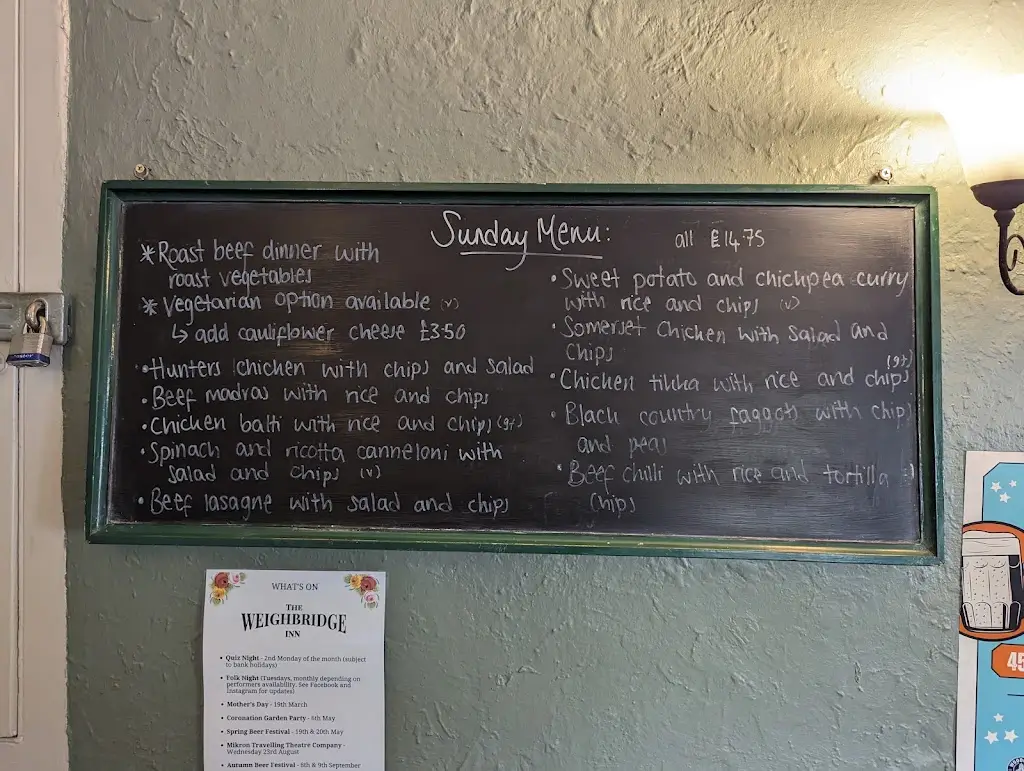 Sunday Menu:
all £14.75
*Roast beef dinner with
roast vegetables
*Vegetarian option available (v)
↳ add cauliflower cheese £3.50
•Hunters chicken with chips and salad
•Beef madras with rice and chips
•Chicken balti with rice and chips (gf)
•Spinach and ricotta canneloni with
salad and chips (v)
•Beef lasagne with salad and chips
•Sweet potato and chickpea curry
with rice and chips (v)
•Somerset Chicken with Salad and
Chips
(gf)
•Chicken tikka with rice and chips
•Black country faggots with chips
and peas
•Beef chilli with rice and tortilla
Chips
WHAT'S ON
THE
WEIGHBRIDGE
INN
• Quiz Night - 2nd Monday of the month (subject
to bank holidays)
• Folk Night (Tuesdays, monthly depending on
performers availability. See Facebook and
Instagram for updates)
• Mother's Day - 19th March
• Coronation Garden Party - 6th May
• Spring Beer Festival - 19th & 20th May
• Mikron Travelling Theatre Company -
Wednesday 23rd August
• Autumn Beer Festival - 8th & 9th September
45